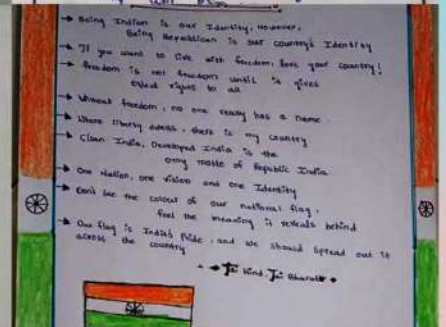 → Being Indian is our Identity, However,
Being Republican is our country's Identity
→ If you want to live with freedom, love your country!
→ freedom is not freedom until it gives
equal rights to all
→ Without freedom, no one really has a name.
→ Where liberty dwells, there is my country
→ Clean India, Developed India is the
only motto of Republic India
→ One Nation, one vision and one Identity
→ Don't see the colour of our national flag,
feel the meaning it reveals behind
→ Our flag is India's Pride, and we should spread out it
across the country
Jai Hind, Jai Bharat